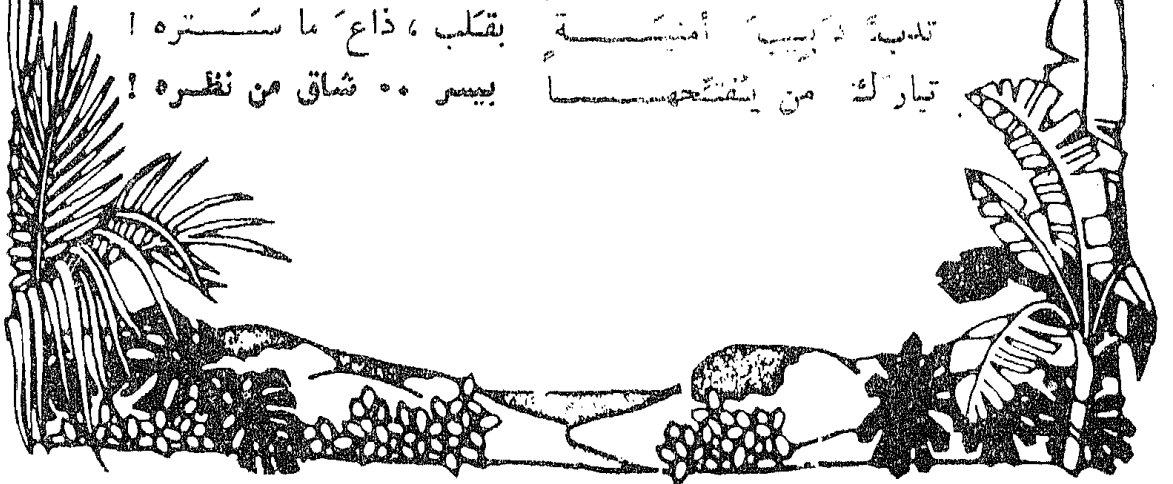 تدبّ دَبِيبَ أمنيَـــــــةٍ بقَلب ، ذاعَ ما ستَــــتره !
تبارك من يُفتّحهـــــــا بيسر .. شاق من نظـره !